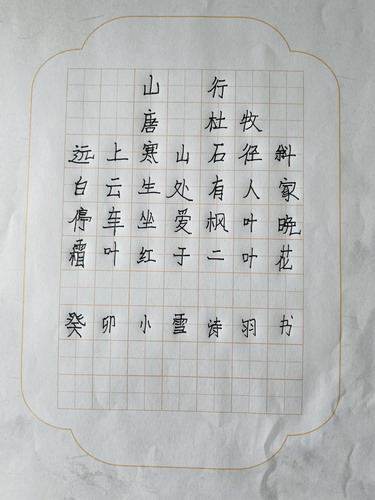 山行
唐 杜牧
远上寒山石径斜
白云生处有人家
停车坐爱枫叶晚
霜叶红于二叶花
癸卯小雪诗羽书